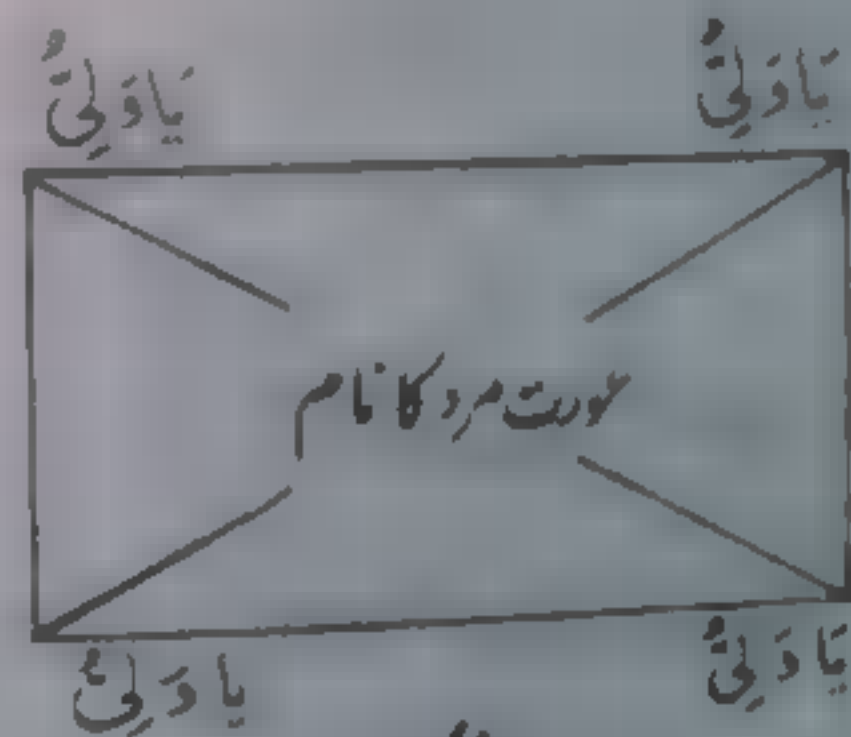 یَاوَلِیُّ یَاوَلِیُّ
عورت مرد کا نام
یَاوَلِیُّ یاوَلِیُّ